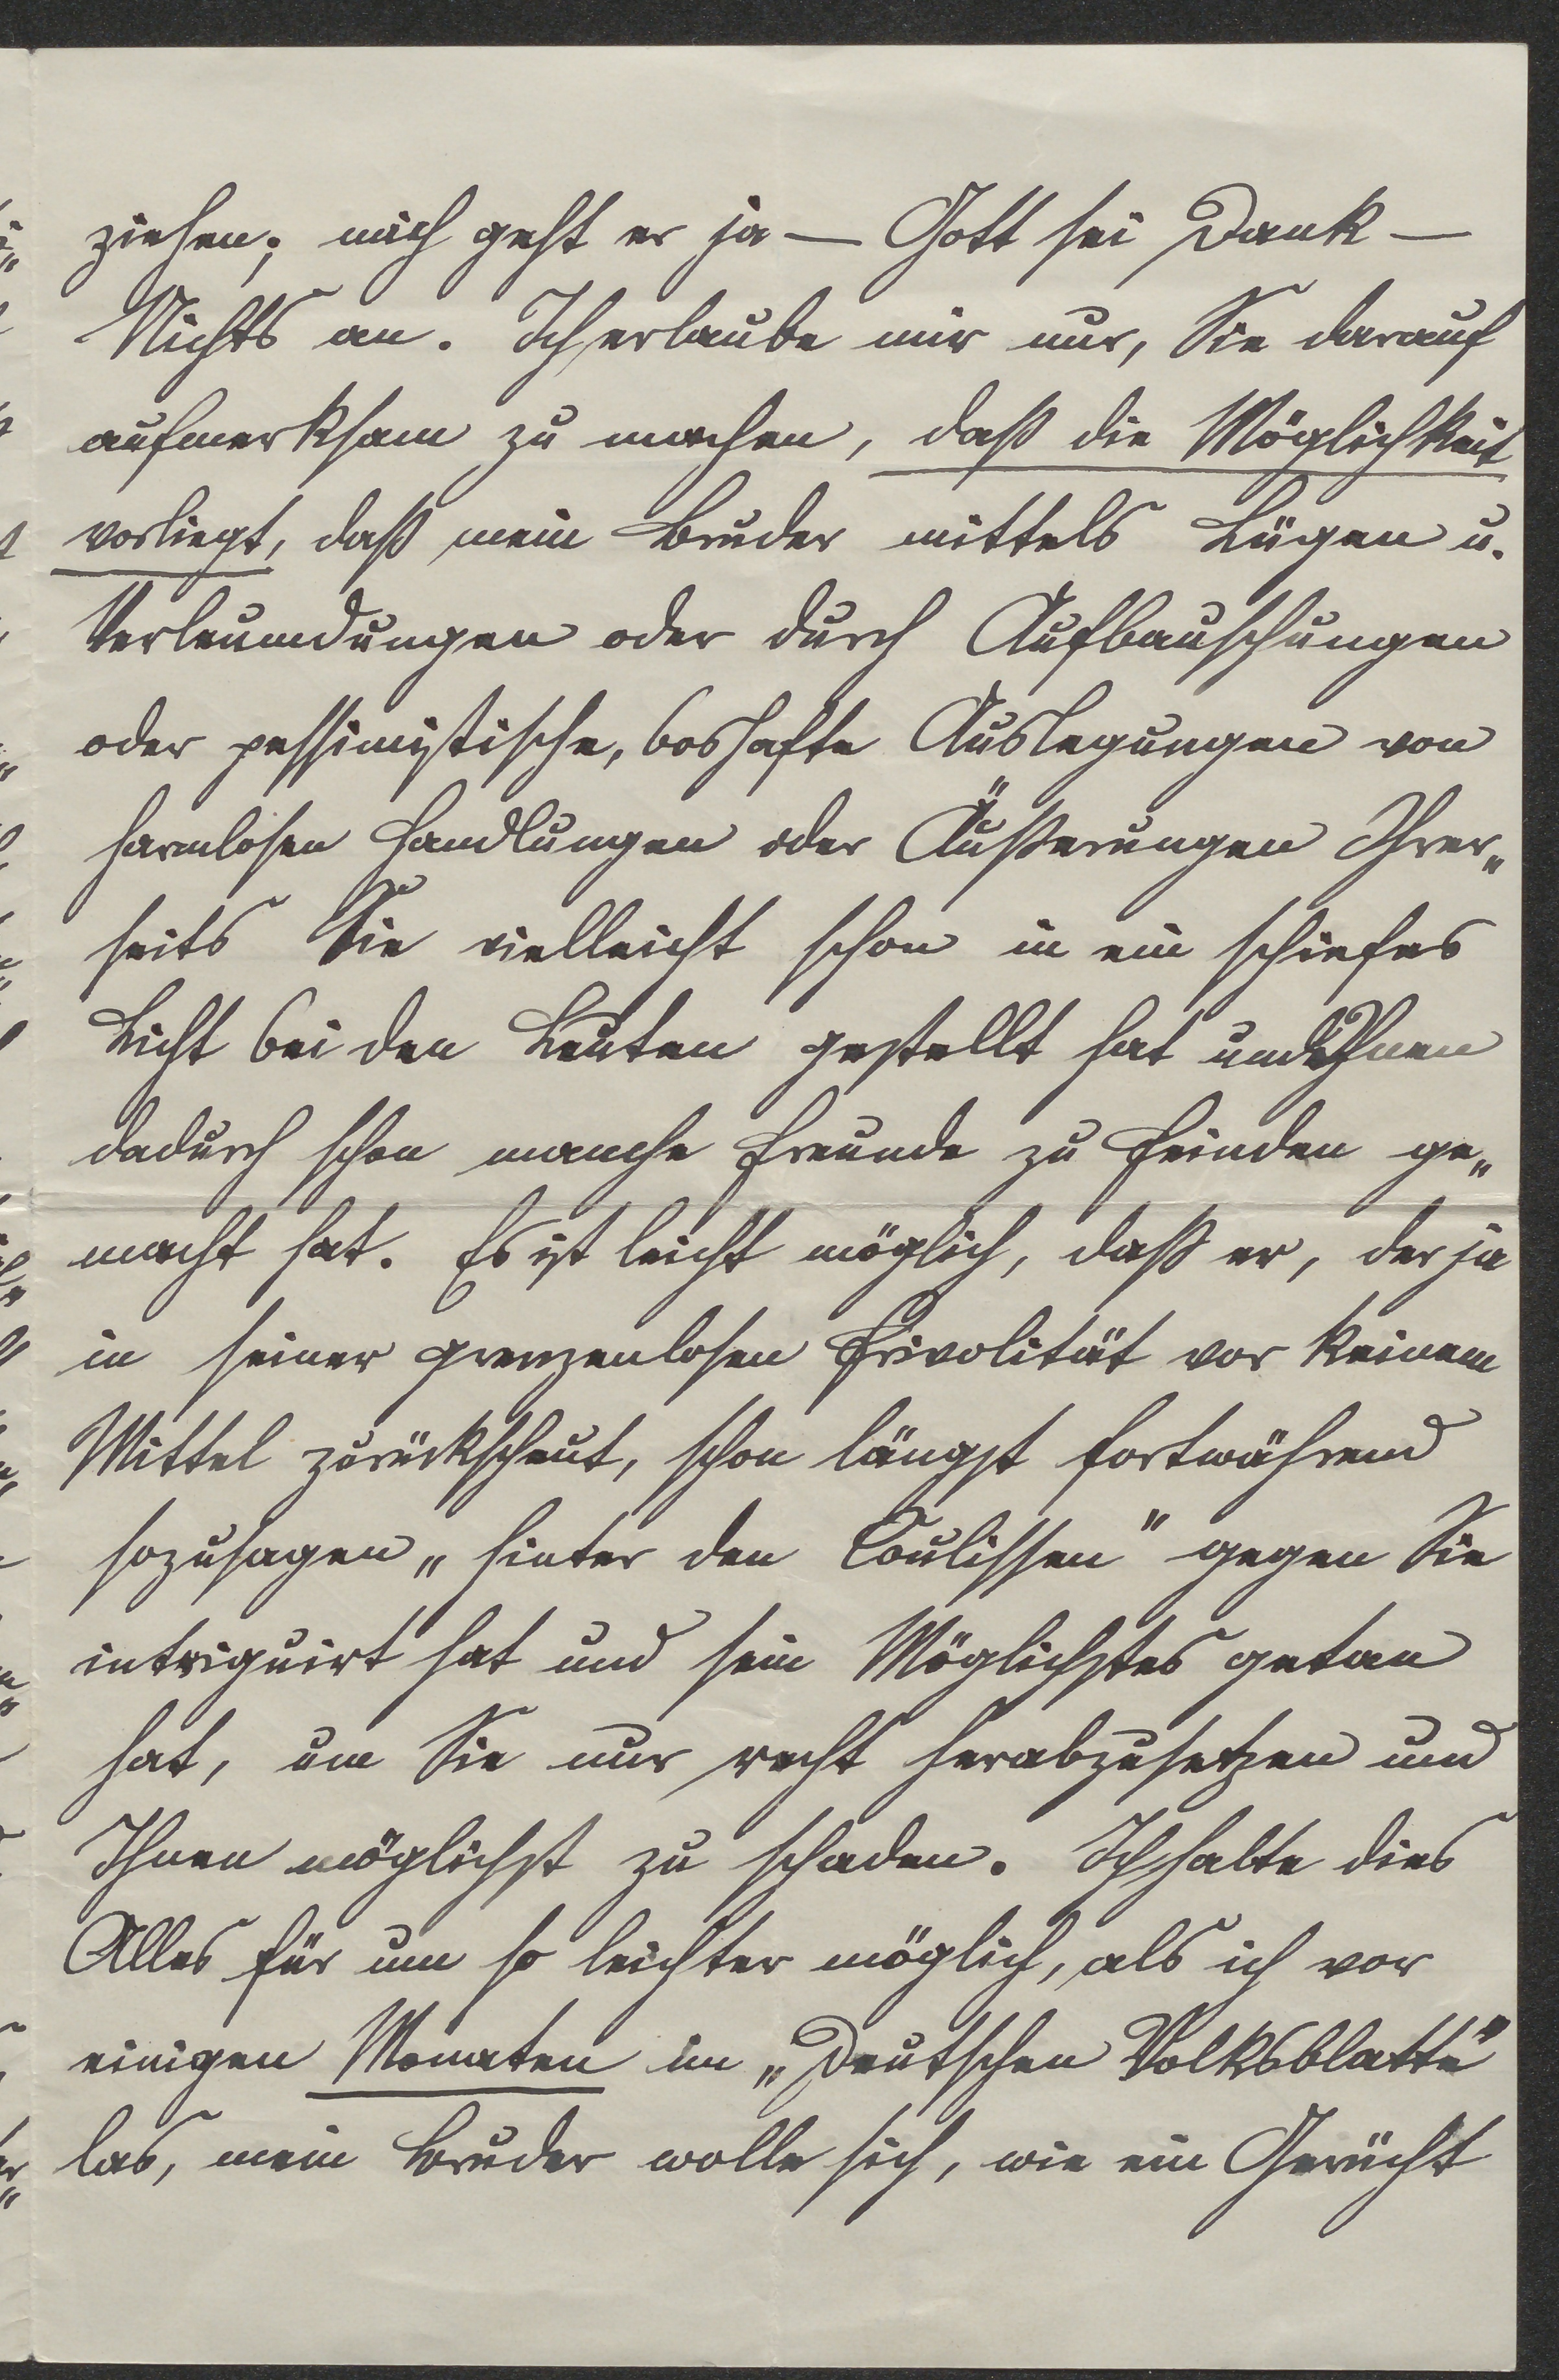 ziehen; mich geht er ja — Gott sei Dank —
Nichts an. Ich erlaube mir nur, Sie darauf
aufmerksam zu machen, daß die Möglichkeit
vorliegt, daß mein Bruder mittels Lügen u.
Verleumdungen oder durch Aufbauschungen
oder pessimistische, boshafte Auslegungen von
harmlosen Handlungen oder Äußerungen Ihrer„
seits Sie vielleicht schon in ein schiefes
Licht bei den Leuten gestellt hat und Ihnen
dadurch schon manche Freunde zu Feinden ge„
macht hat. Es ist leicht möglich, daß er, der ja
in seiner grenzenlosen Frivolität vor keinem
Mittel zurückscheut, schon längst fortwährend
sozusagen „hinter den Coulissen" gegen Sie
intriguirt hat und sein Möglichstes getan
hat, um Sie nur recht herabzusetzen und
Ihnen möglichst zu schaden. Ich halte dies
Alles für um so leichter möglich, als ich vor
einigen Monaten im „Deutschen Volksblatte"
las, mein Bruder wolle sich, wie ein Gerücht